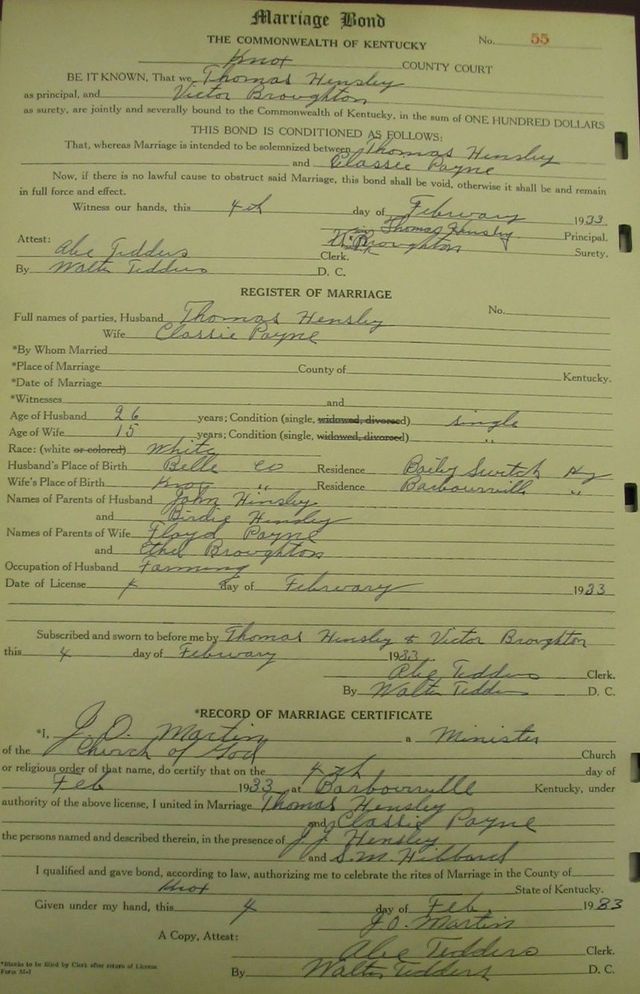 Marriage Bond
THE COMMONWEALTH OF KENTUCKY No. 55
Knox COUNTY COURT
BE IT KNOWN, That we, Thomas Hensley
as principal, and Victor Broughton
as surety, are jointly and severally bound to the Commonwealth of Kentucky, in the sum of ONE HUNDRED DOLLARS
THIS BOND IS CONDITIONED AS FOLLOWS:
That, whereas Marriage is intended to be solemnized between Thomas Hensley
and Classie Payne
Now, if there is no lawful cause to obstruct said Marriage, this bond shall be void, otherwise it shall be and remain
in full force and effect.
Witness our hands, this 4th day of February 1933
Thomas Hensley Principal.
Attest: Broughton Surety.
Abe Tedders Clerk.
By Walter Tedders D. C.
REGISTER OF MARRIAGE
Full names of parties, Husband Thomas Hensley No.
Wife Classie Payne
*By Whom Married
*Place of Marriage County of Kentucky.
*Date of Marriage
*Witnesses and
Age of Husband 26 years; Condition (single, widowed, divorced) single
Age of Wife 15 years; Condition (single, widowed, divorced) "
Race: (white or colored) White
Husband's Place of Birth Belle Co Residence Baily Switch Ky
Wife's Place of Birth Knox " Residence Barbourville "
Names of Parents of Husband John Hinsley
and Birdie Hensley
Names of Parents of Wife Floyd Payne
and Ethel Broughton
Occupation of Husband Farming
Date of License 4 day of February 1933
Subscribed and sworn to before me by Thomas Hensley & Victor Broughton
this 4 day of February 1933
Abe Tedders Clerk.
By Walter Tedders D. C.
*RECORD OF MARRIAGE CERTIFICATE
*I, J. O. Martin a Minister
of the Church of God Church
or religious order of that name, do certify that on the 4th day of
Feb 1933 at Barbourville Kentucky, under
authority of the above license, I united in Marriage Thomas Hensley
and Classie Payne
the persons named and described therein, in the presence of J. J. Hensley
and S. M. Hibbard
I qualified and gave bond, according to law, authorizing me to celebrate the rites of Marriage in the County of
Knox State of Kentucky.
Given under my hand, this 4 day of Feb. 1933
J. O. Martin
A Copy, Attest: Abe Tedders Clerk.
*Blanks to be filled by Clerk after return of License
Form M-1 By Walter Tedders D. C.